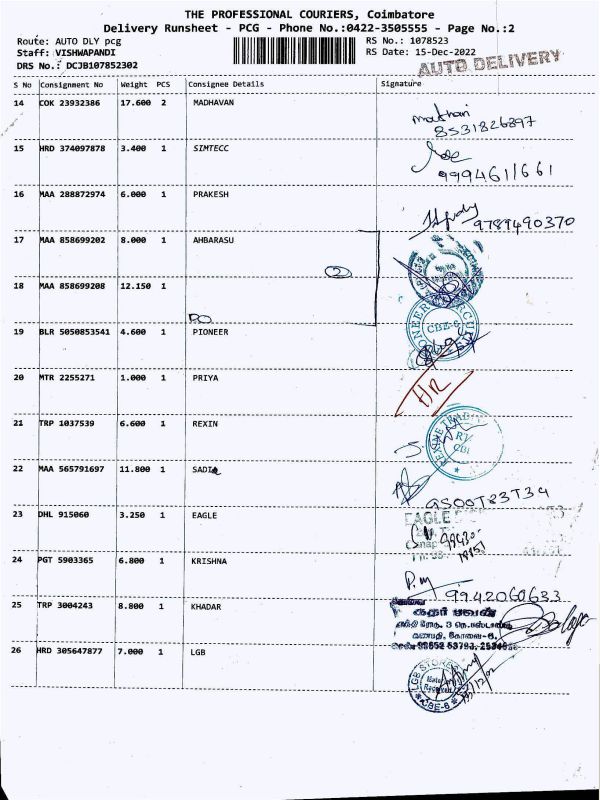 THE PROFESSIONAL COURIERS, Coimbatore
Delivery Runsheet - PCG - Phone No.:0422-3505555 - Page No.:2
Route: AUTO DLY pcg
RS No.: 1078523
Staff: VISHWAPANDI
RS Date: 15-Dec-2022
DRS No.: DCJB107852302
AUTO DELIVERY
S No Consignment No Weight PCS Consignee Details Signature
14 COK 23932386 17.600 2 MADHAVAN
8531826897
15 HRD 374097878 3.400 1 SIMTECC
9994611661
16 MAA 288872974 6.000 1 PRAKESH
9789490370
17 MAA 858699202 8.000 1 AHBARASU
2
18 MAA 858699208 12.150 1
19 BLR 5050853541 4.600 1 PIONEER
CBE-6
20 MTR 2255271 1.000 1 PRIYA
HR
21 TRP 1037539 6.600 1 REXIN
22 MAA 565791697 11.800 1 SADI
23 DHL 915060 3.250 1 EAGLE
EAGLE
24 PGT 5903365 6.800 1 KRISHNA
P.M
9942060633
25 TRP 3004243 8.800 1 KHADAR
கணபதி, கோவை-6.
26 HRD 305647877 7.000 1 LGB
LGB STORES
CBE-6